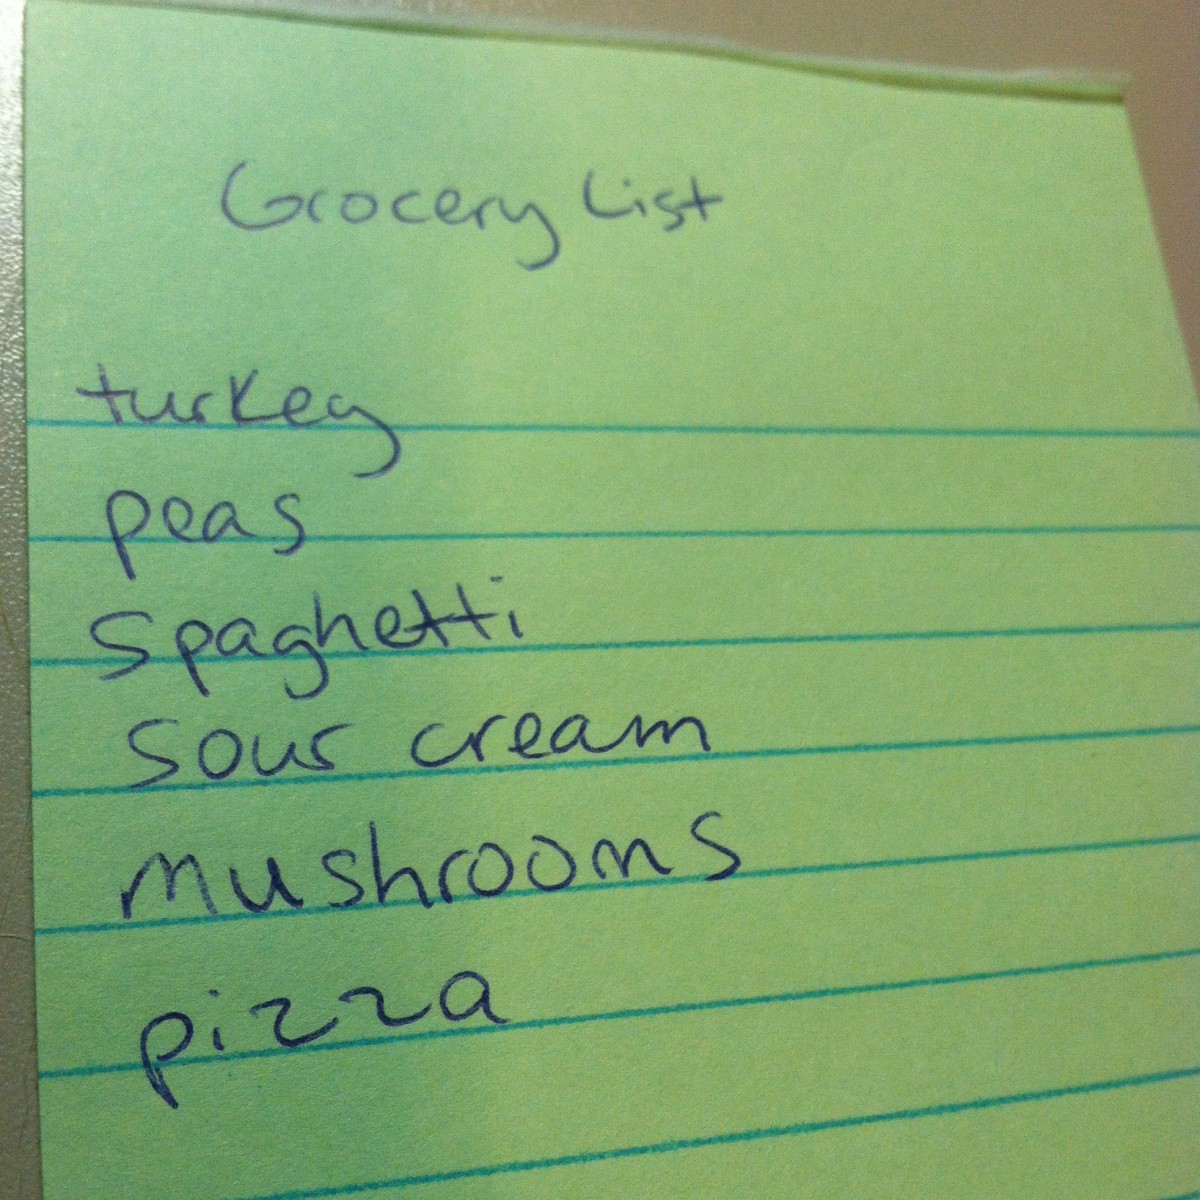 Grocery List
turkey
peas
Spaghetti
Sour cream
mushrooms
pizza